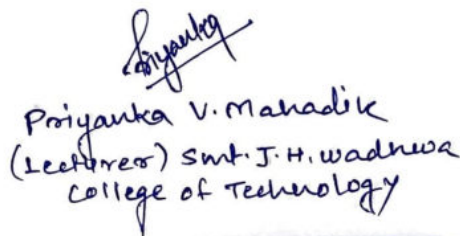 Priyanka
Priyanka V. Mahadik
(Lecturer) Smt. J. H. Wadhwa
College of Technology